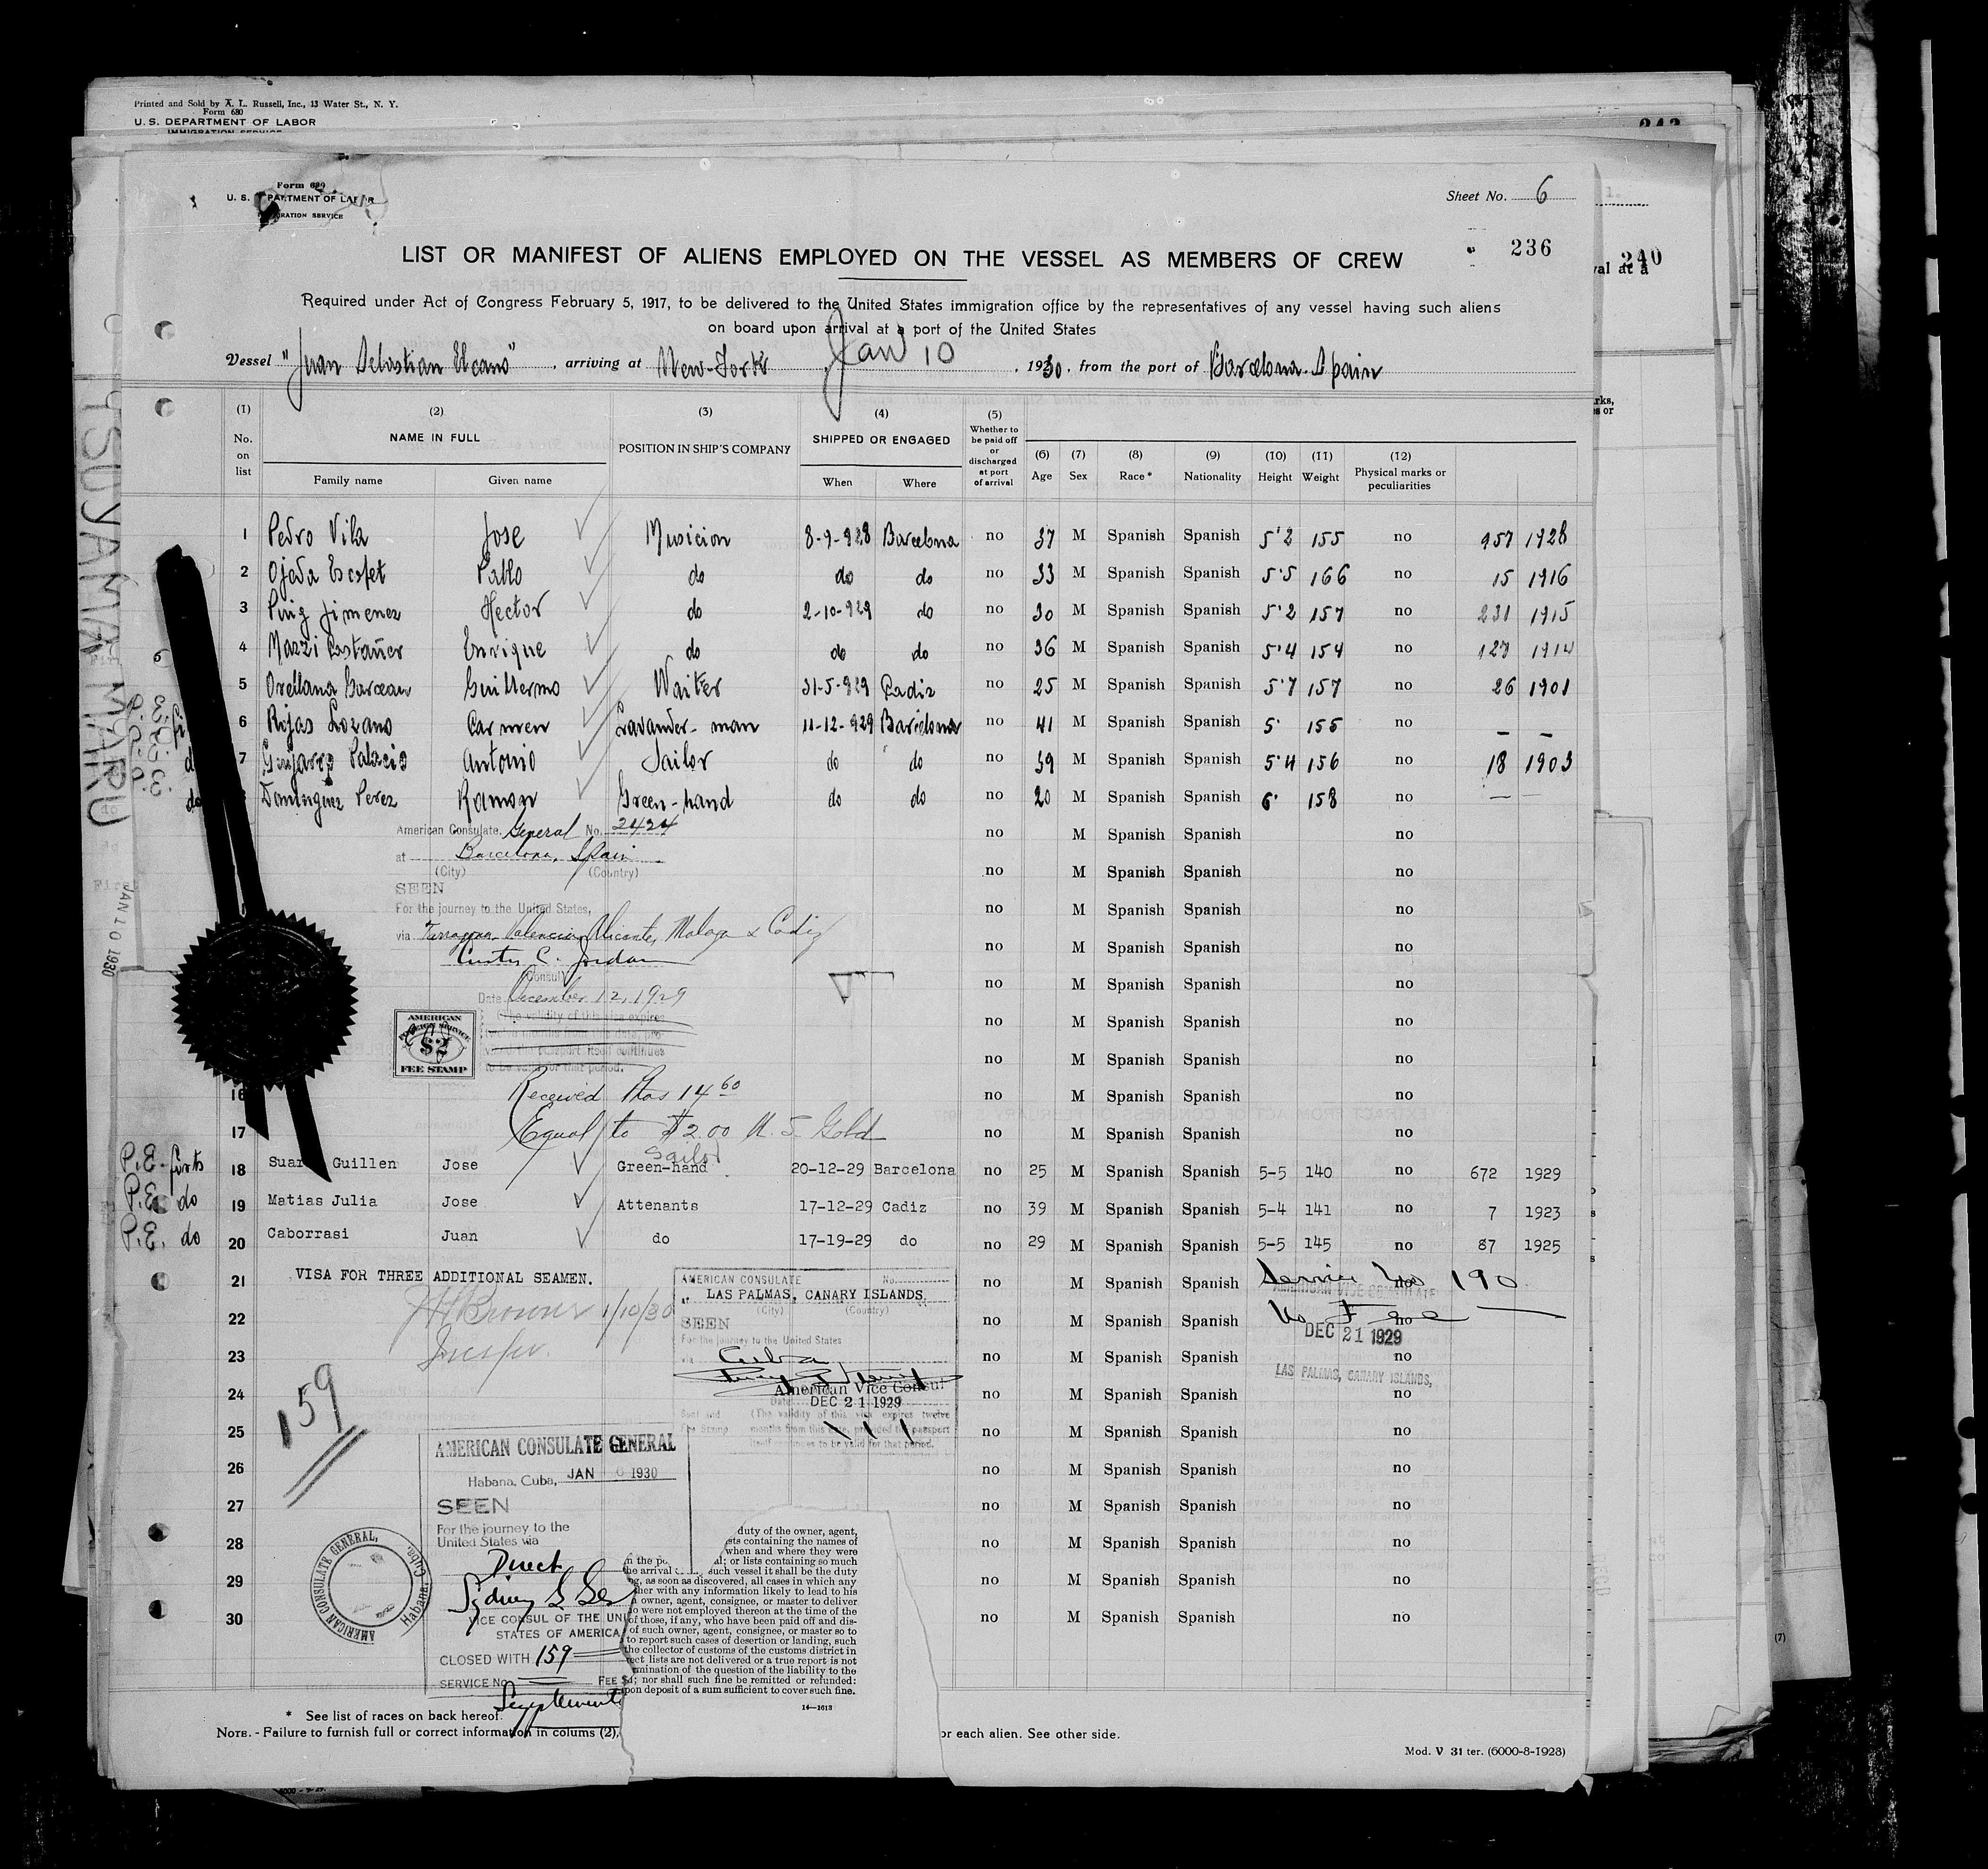 Printed and Sold by A. L. Russell, Inc., 13 Water St., N. Y.
Form 680
U. S. DEPARTMENT OF LABOR
IMMIGRATION SERVICE
Form 680
U. S. DEPARTMENT OF LABOR
IMMIGRATION SERVICE
Sheet No. 6
LIST OR MANIFEST OF ALIENS EMPLOYED ON THE VESSEL AS MEMBERS OF CREW
236
240
Required under Act of Congress February 5, 1917, to be delivered to the United States immigration office by the representatives of any vessel having such aliens
on board upon arrival at a port of the United States
Vessel "Juan Sebastian Elcano", arriving at New-York Jan 10, 1930, from the port of Barcelona-Spain
(1) No. on list (2) NAME IN FULL Family name Given name (3) POSITION IN SHIP'S COMPANY (4) SHIPPED OR ENGAGED When Where (5) Whether to be paid off or discharged at port of arrival (6) Age (7) Sex (8) Race* (9) Nationality (10) Height (11) Weight (12) Physical marks or peculiarities
1 Pedro Vila Jose Musicion 8-9-928 Barcelona no 37 M Spanish Spanish 5'2 155 no 957 1928
2 Ojeda Escofet Pablo do do do no 33 M Spanish Spanish 5'5 166 no 15 1916
3 Puig Jimenez Hector do 2-10-929 do no 30 M Spanish Spanish 5'2 157 no 231 1915
4 Mazzi Castañer Enrique do do do no 36 M Spanish Spanish 5'4 154 no 127 1914
5 Orellana Guillermo Waiter 31-5-929 Cadiz no 25 M Spanish Spanish 5'7 157 no 26 1901
6 Rojas Lozano Carmen Lavander-man 11-12-929 Barcelona no 41 M Spanish Spanish 5' 155 no — —
7 Palacio Antonio Sailor do do no 39 M Spanish Spanish 5'4 156 no 18 1903
Dominguez Perez Ramon Green-hand do do no 20 M Spanish Spanish 6' 158 no — —
American Consulate General No. 2424 no M Spanish Spanish no
at Barcelona, Spain no M Spanish Spanish no
(City) (Country)
SEEN
For the journey to the United States, no M Spanish Spanish no
via Tarragona, Valencia, Alicante, Malaga & Cadiz no M Spanish Spanish no
Curtis C. Jordan
Consul no M Spanish Spanish no
Date December 12, 1929
(The validity of this visa expires no M Spanish Spanish no
to be valid for that period.
AMERICAN
FOREIGN SERVICE
$2
FEE STAMP
no M Spanish Spanish no
16 Received Ptas 14 60 no M Spanish Spanish no
17 Equal to $2.00 U. S. Gold no M Spanish Spanish no
Sailor
P.E. 18 Guillen Jose Green-hand 20-12-29 Barcelona no 25 M Spanish Spanish 5-5 140 no 672 1929
P.E. do 19 Matias Julia Jose Attenants 17-12-29 Cadiz no 39 M Spanish Spanish 5-4 141 no 7 1923
P.E. do 20 Caborrasi Juan do 17-19-29 do no 29 M Spanish Spanish 5-5 145 no 87 1925
21 VISA FOR THREE ADDITIONAL SEAMEN. no M Spanish Spanish no Service No 190
22 1/10/30 no M Spanish Spanish no No Fee
AMERICAN CONSULATE No.
LAS PALMAS, CANARY ISLANDS,
(City) (Country)
SEEN
For the journey to the United States
via Cuba
American Vice Consul
DEC 21 1929
(The validity of this visa expires twelve
months from this date, provided the passport
itself continues to be valid for that period.
AMERICAN VICE CONSULATE
DEC 21 1929
LAS PALMAS, CANARY ISLANDS,
23 no M Spanish Spanish no
24 no M Spanish Spanish no
25 no M Spanish Spanish no
26 no M Spanish Spanish no
27 no M Spanish Spanish no
28 no M Spanish Spanish no
29 no M Spanish Spanish no
30 no M Spanish Spanish no
159
AMERICAN CONSULATE GENERAL
Habana, Cuba, JAN 1930
SEEN
For the journey to the
United States via
Direct
VICE CONSUL OF THE UNI
STATES OF AMERICA
CLOSED WITH 159
SERVICE No. FEE $
AMERICAN CONSULATE GENERAL, Habana, Cuba.
duty of the owner, agent,
sts containing the names of
when and where they were
al; or lists containing so much
the arrival such vessel it shall be the duty
, as soon as discovered, all cases in which any
her with any information likely to lead to his
owner, agent, consignee, or master to deliver
o were not employed thereon at the time of the
of those, if any, who have been paid off and dis-
of such owner, agent, consignee, or master so to
to report such cases of desertion or landing, such
the collector of customs of the customs district in
ect lists are not delivered or a true report is not
mination of the question of the liability to the
; nor shall such fine be remitted or refunded:
pon deposit of a sum sufficient to cover such fine.
14—1613
* See list of races on back hereof.
NOTE. - Failure to furnish full or correct information in colums (2), or each alien. See other side.
Mod. V 31 ter. (6000-8-1928)
TSUYAMA MARU
JAN 10 1930
(7)